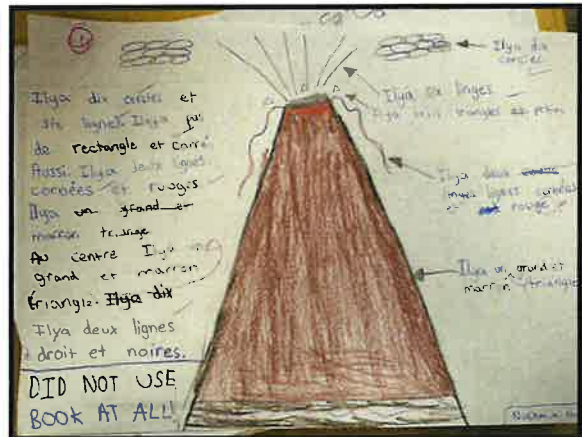 Ilya dix cercles et
six lignes. Ilya pas
de rectangle et carré.
Aussi Ilya deux lignes
corbées et rouges
Ilya un grand et
marron triangle
Au centre Ilya
grand et marron
triangle. Ilya dix
Ilya deux lignes
droit et noires.
DID NOT USE
BOOK AT ALL!
Ilya dix
cercles
Ilya six linges
Ilya triangles et petits
Ilya deux
lignes
et rouge
Ilya un grand et
marron triangle